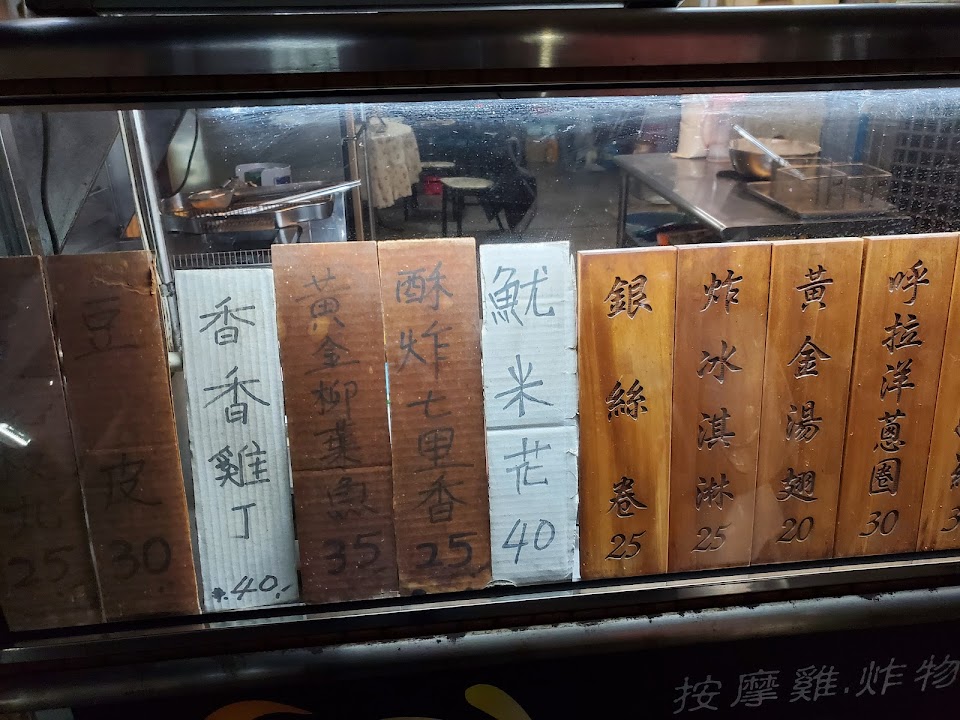 25
豆皮 30
香香雞丁 40
黃金柳葉魚 35
酥炸七里香 25
魷米花 40
銀絲卷 25
炸冰淇淋 25
黃金湯翅 20
呼拉洋蔥圈 30
按摩雞.炸物